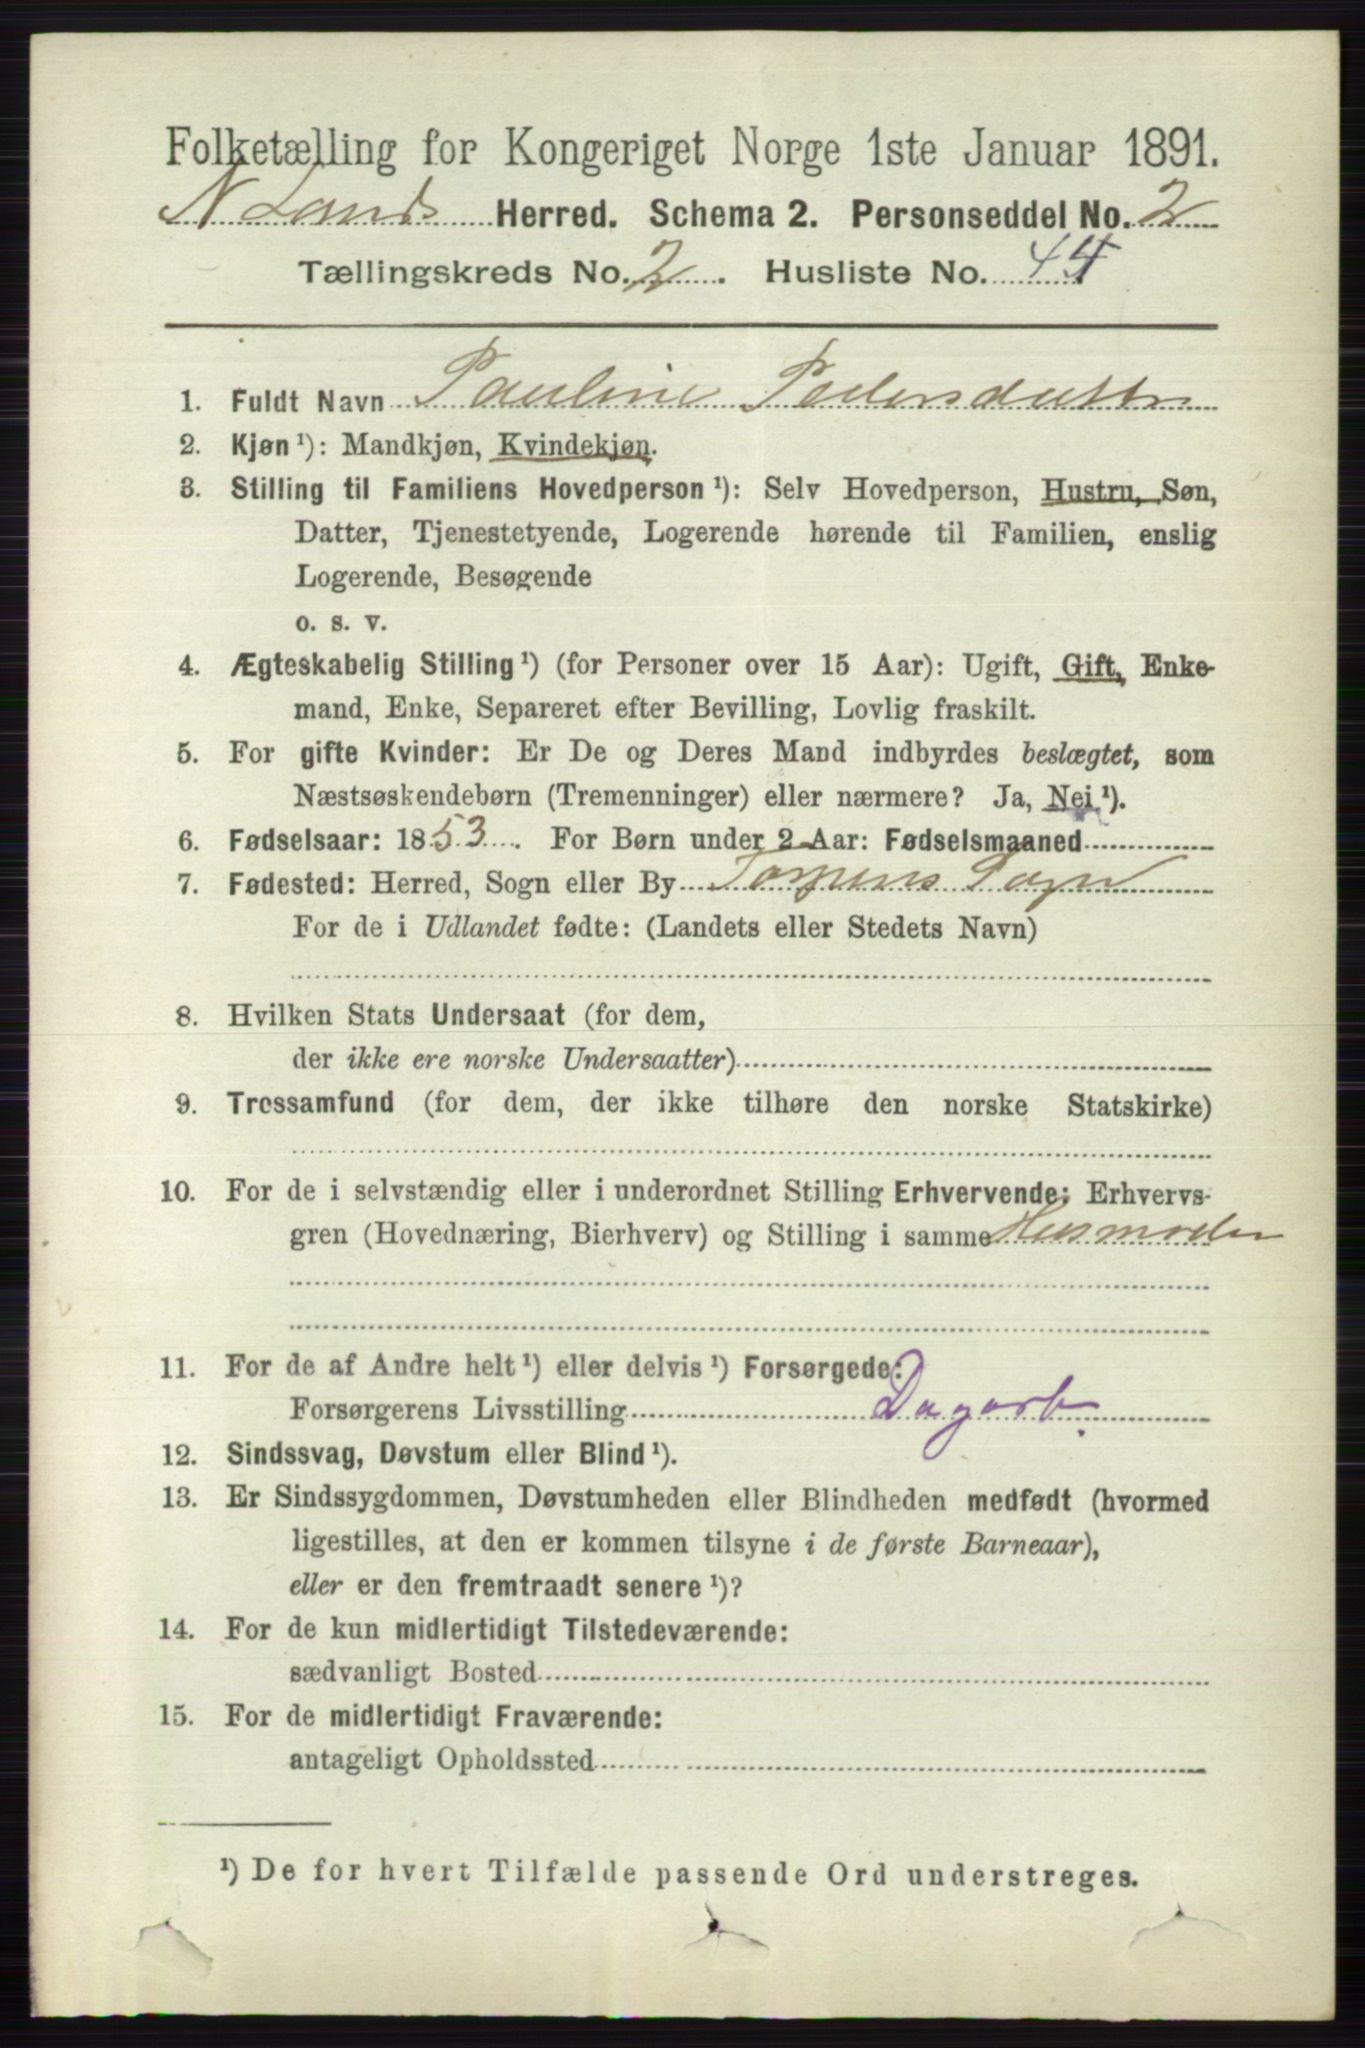 Folketælling for Kongeriget Norge 1ste Januar 1891.
N Lands Herred. Schema 2. Personseddel No. 2
Tællingskreds No. 2. Husliste No. 44
1. Fuldt Navn Pauline Pedersdatter
2. Kjøn¹): Mandkjøn, Kvindekjøn.
3. Stilling til Familiens Hovedperson¹): Selv Hovedperson, Hustru, Søn,
Datter, Tjenestetyende, Logerende hørende til Familien, enslig
Logerende, Besøgende
o. s. v.
4. Ægteskabelig Stilling¹) (for Personer over 15 Aar): Ugift, Gift, Enke-
mand, Enke, Separeret efter Bevilling, Lovlig fraskilt.
5. For gifte Kvinder: Er De og Deres Mand indbyrdes beslægtet, som
Næstsøskendebørn (Tremenninger) eller nærmere? Ja, Nei¹).
6. Fødselsaar: 1853. For Børn under 2 Aar: Fødselsmaaned
7. Fødested: Herred, Sogn eller By Torpens Sogn
For de i Udlandet fødte: (Landets eller Stedets Navn)
8. Hvilken Stats Undersaat (for dem,
der ikke ere norske Undersaatter)
9. Trossamfund (for dem, der ikke tilhøre den norske Statskirke)
10. For de i selvstændig eller i underordnet Stilling Erhvervende: Erhvervs-
gren (Hovednæring, Bierhverv) og Stilling i samme Husmoder
11. For de af Andre helt¹) eller delvis¹) Forsørgede:
Forsørgerens Livsstilling Dagarb.
12. Sindssvag, Døvstum eller Blind¹).
13. Er Sindssygdommen, Døvstumheden eller Blindheden medfødt (hvormed
ligestilles, at den er kommen tilsyne i de første Barneaar),
eller er den fremtraadt senere¹)?
14. For de kun midlertidigt Tilstedeværende:
sædvanligt Bosted
15. For de midlertidigt Fraværende:
antageligt Opholdssted
¹) De for hvert Tilfælde passende Ord understreges.